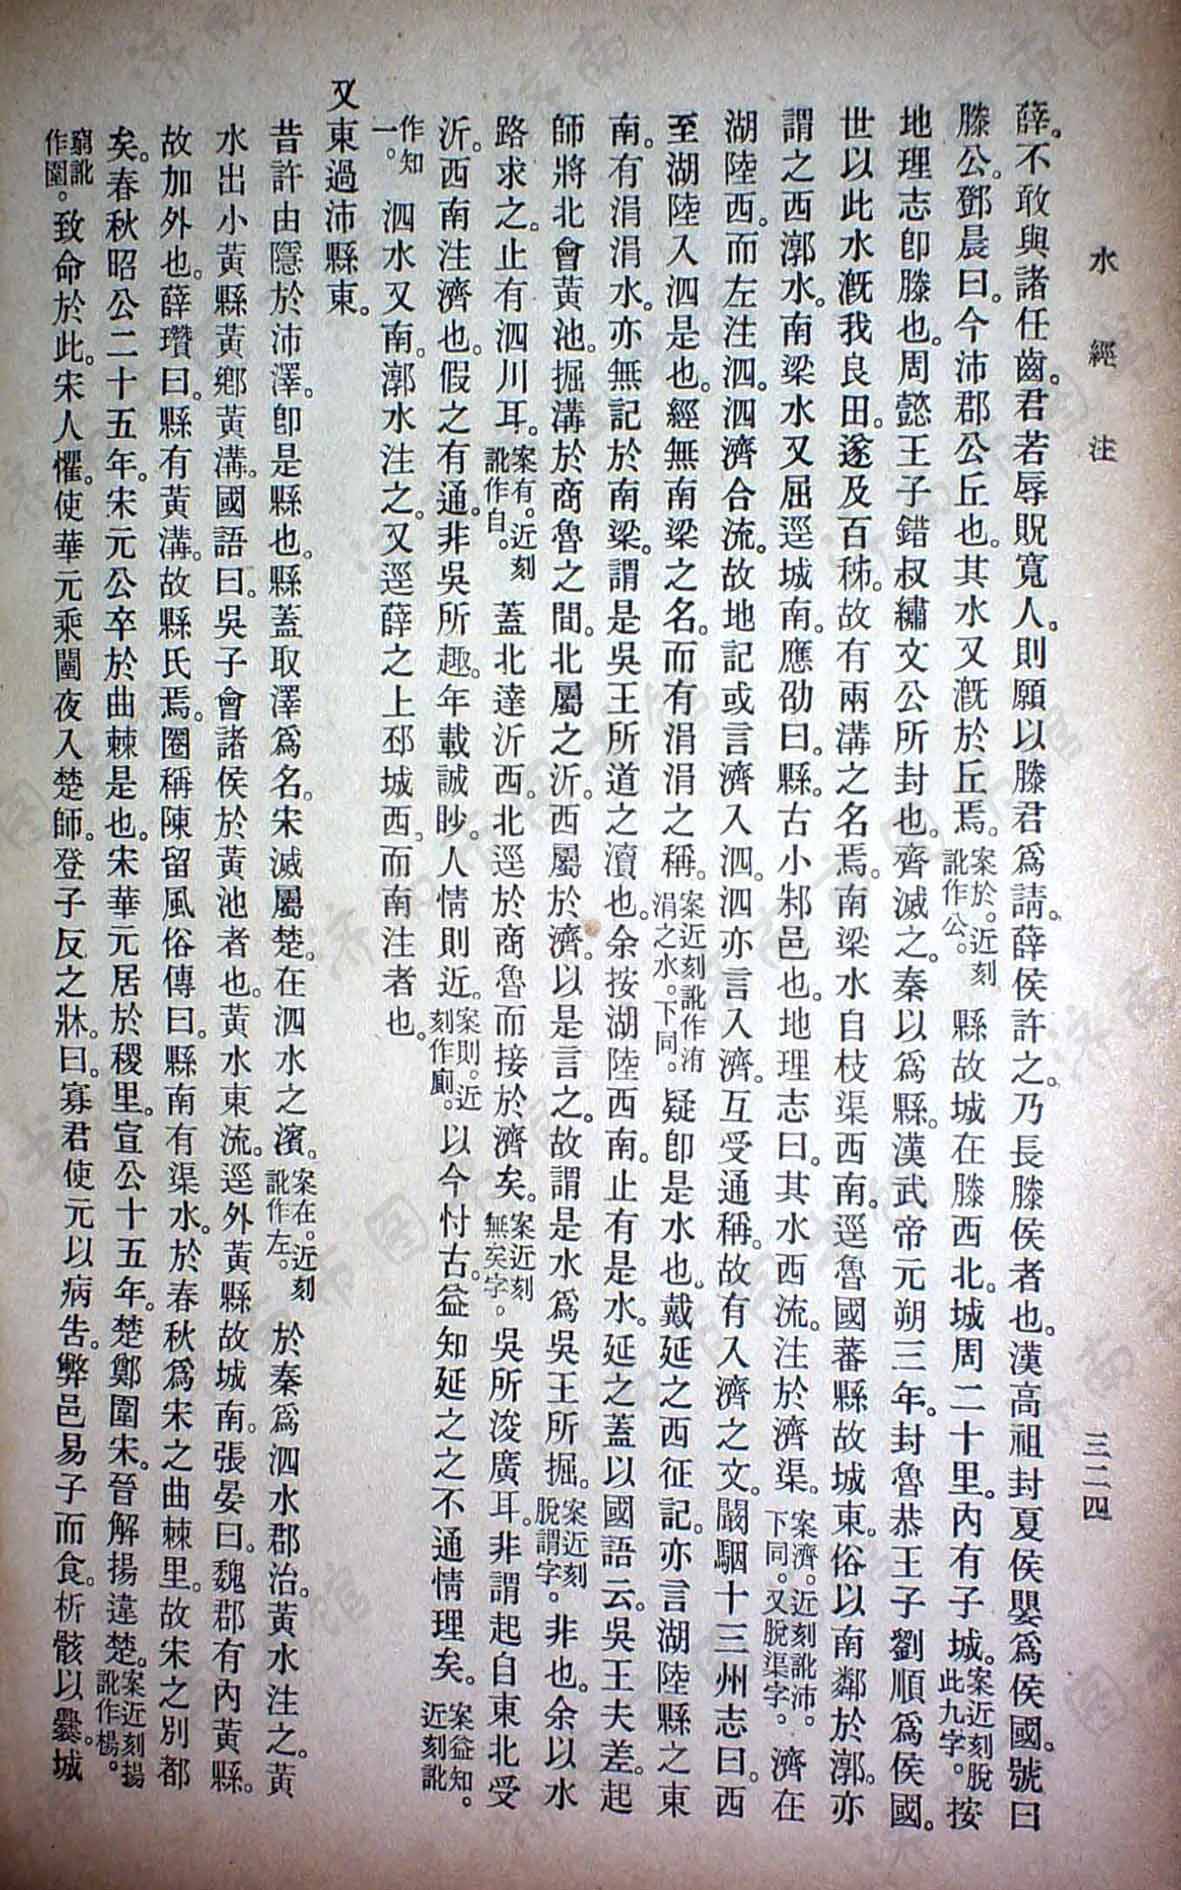 水經注
三二四
薛。不敢與諸任齒。君若辱貺寬人。則願以滕君爲請。薛侯許之。乃長滕侯者也。漢高祖封夏侯嬰爲侯國。號曰
滕公。鄧晨曰。今沛郡公丘也。其水又漑於丘焉。案於。近刻訛作公。縣故城在滕西北。城周二十里。內有子城。案近刻脫此九字。按
地理志卽滕也。周懿王子錯叔繡文公所封也。齊滅之。秦以爲縣。漢武帝元朔三年。封魯恭王子劉順爲侯國。
世以此水漑我良田。遂及百秭。故有兩溝之名焉。南梁水自枝渠西南。逕魯國蕃縣故城東。俗以南鄰於漷。亦
謂之西漷水。南梁水又屈逕城南。應劭曰。縣。古小邾邑也。地理志曰。其水西流。注於濟渠。案濟。近刻訛沛。下同。又脫渠字。濟在
湖陸西。而左注泗。泗濟合流。故地記或言濟入泗。泗亦言入濟。互受通稱。故有入濟之文。闞駰十三州志曰。西
至湖陸入泗是也。經無南梁之名。而有涓涓之稱。案近刻訛作洧涓之水。下同。疑卽是水也。戴延之西征記。亦言湖陸縣之東
南。有涓涓水。亦無記於南梁。謂是吳王所道之瀆也。余按湖陸西南。止有是水。延之蓋以國語云。吳王夫差。起
師將北會黃池。掘溝於商魯之間。北屬之沂。西屬於濟。以是言之。故謂是水爲吳王所掘。案近刻脫謂字。非也。余以水
路求之。止有泗川耳。案有。近刻訛作自。蓋北達沂西。北逕於商魯而接於濟矣。案近刻無矣字。吳所浚廣耳。非謂起自東北受
沂。西南注濟也。假之有通。非吳所趣。年載誠眇。人情則近。案則。近刻作廁。以今忖古。益知延之之不通情理矣。案益知。近刻訛
作知一。泗水又南。漷水注之。又逕薛之上邳城西。而南注者也。
又東過沛縣東。
昔許由隱於沛澤。卽是縣也。縣蓋取澤爲名。宋滅屬楚。在泗水之濱。案在。近刻訛作左。於秦爲泗水郡治。黃水注之。黃
水出小黃縣黃鄉黃溝。國語曰。吳子會諸侯於黃池者也。黃水東流。逕外黃縣故城南。張晏曰。魏郡有內黃縣。
故加外也。薛瓚曰。縣有黃溝。故縣氏焉。圈稱陳留風俗傳曰。縣南有渠水。於春秋爲宋之曲棘里。故宋之別都
矣。春秋昭公二十五年。宋元公卒於曲棘是也。宋華元居於稷里。宣公十五年。楚鄭圍宋。晉解揚違楚。案近刻揚訛作楊。
窮訛作圍。致命於此。宋人懼。使華元乘闉夜入楚師。登子反之牀。曰。寡君使元以病告。弊邑易子而食。析骸以爨。城